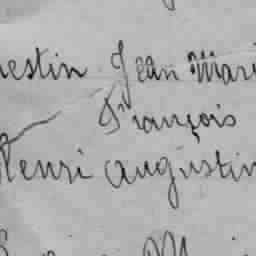 estin Jean Mari
François
Henri Augustin